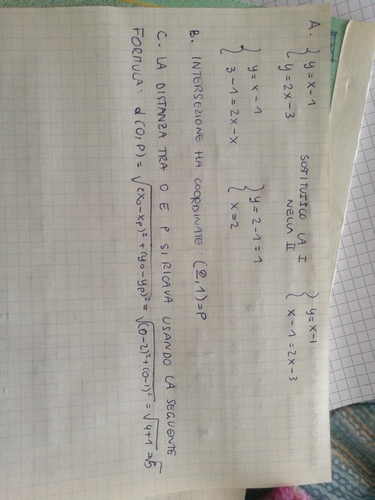 A. { y = x - 1 { y = 2x - 3 SOSTITUISCO LA I NELLA II { y = x - 1 { x - 1 = 2x - 3
{ y = x - 1 { 3 - 1 = 2x - x { y = 2 - 1 = 1 { x = 2
B. INTERSEZIONE HA COORDINATE (2,1) = P
C. LA DISTANZA TRA O E P SI RICAVA USANDO LA SEGUENTE
FORMULA: d(O,P) = √(x₀ - xₚ)² + (y₀ - yₚ)² = √(0-2)² + (0-1)² = √4+1 = √5